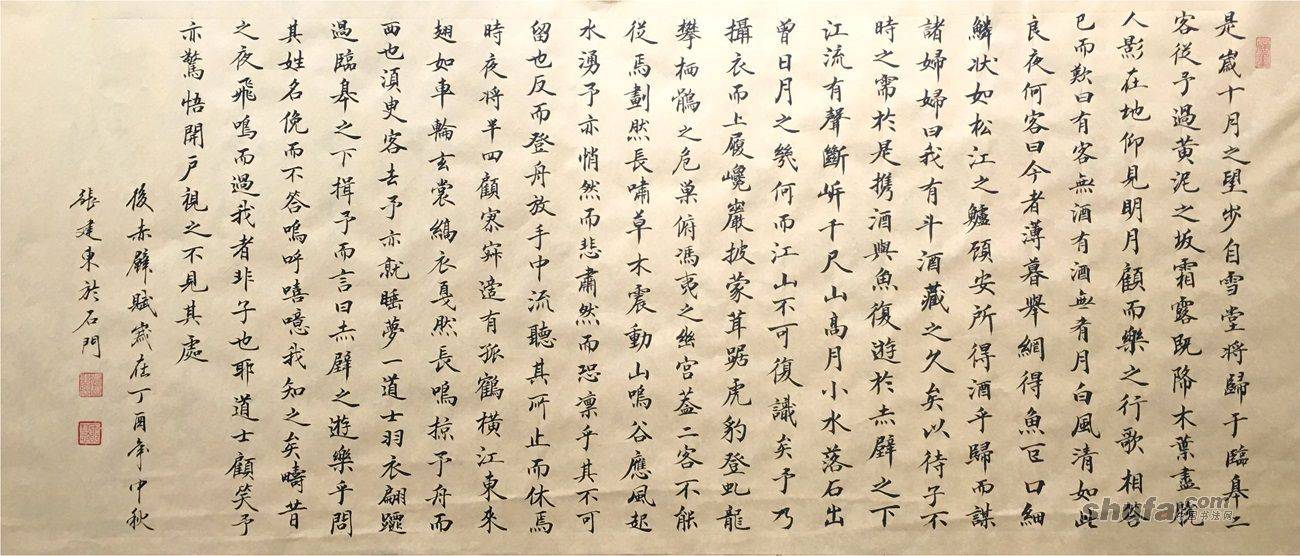 是歲十月之望步自雪堂將歸于臨皋二
客從予過黃泥之坂霜露既降木葉盡脫
人影在地仰見明月顧而樂之行歌相答
已而歎曰有客無酒有酒無肴月白風清如此
良夜何客曰今者薄暮舉網得魚巨口細
鱗狀如松江之鱸顧安所得酒乎歸而謀
諸婦婦曰我有斗酒藏之久矣以待子不
時之需於是攜酒與魚復遊於赤壁之下
江流有聲斷岸千尺山高月小水落石出
曾日月之幾何而江山不可復識矣予乃
攝衣而上履巉巖披蒙茸踞虎豹登虬龍
攀栖鶻之危巢俯馮夷之幽宮蓋二客不能
從焉劃然長嘯草木震動山鳴谷應風起
水湧予亦悄然而悲肅然而恐凜乎其不可
留也反而登舟放乎中流聽其所止而休焉
時夜將半四顧寂寥適有孤鶴橫江東來
翅如車輪玄裳縞衣戛然長鳴掠予舟而
西也須臾客去予亦就睡夢一道士羽衣翩躚
過臨皋之下揖予而言曰赤壁之遊樂乎問
其姓名俛而不答嗚呼噫嘻我知之矣疇昔
之夜飛鳴而過我者非子也耶道士顧笑予
亦驚悟開戶視之不見其處
後赤壁賦歲在丁酉年中秋
張建東於石門
shufa.com
中国书法网